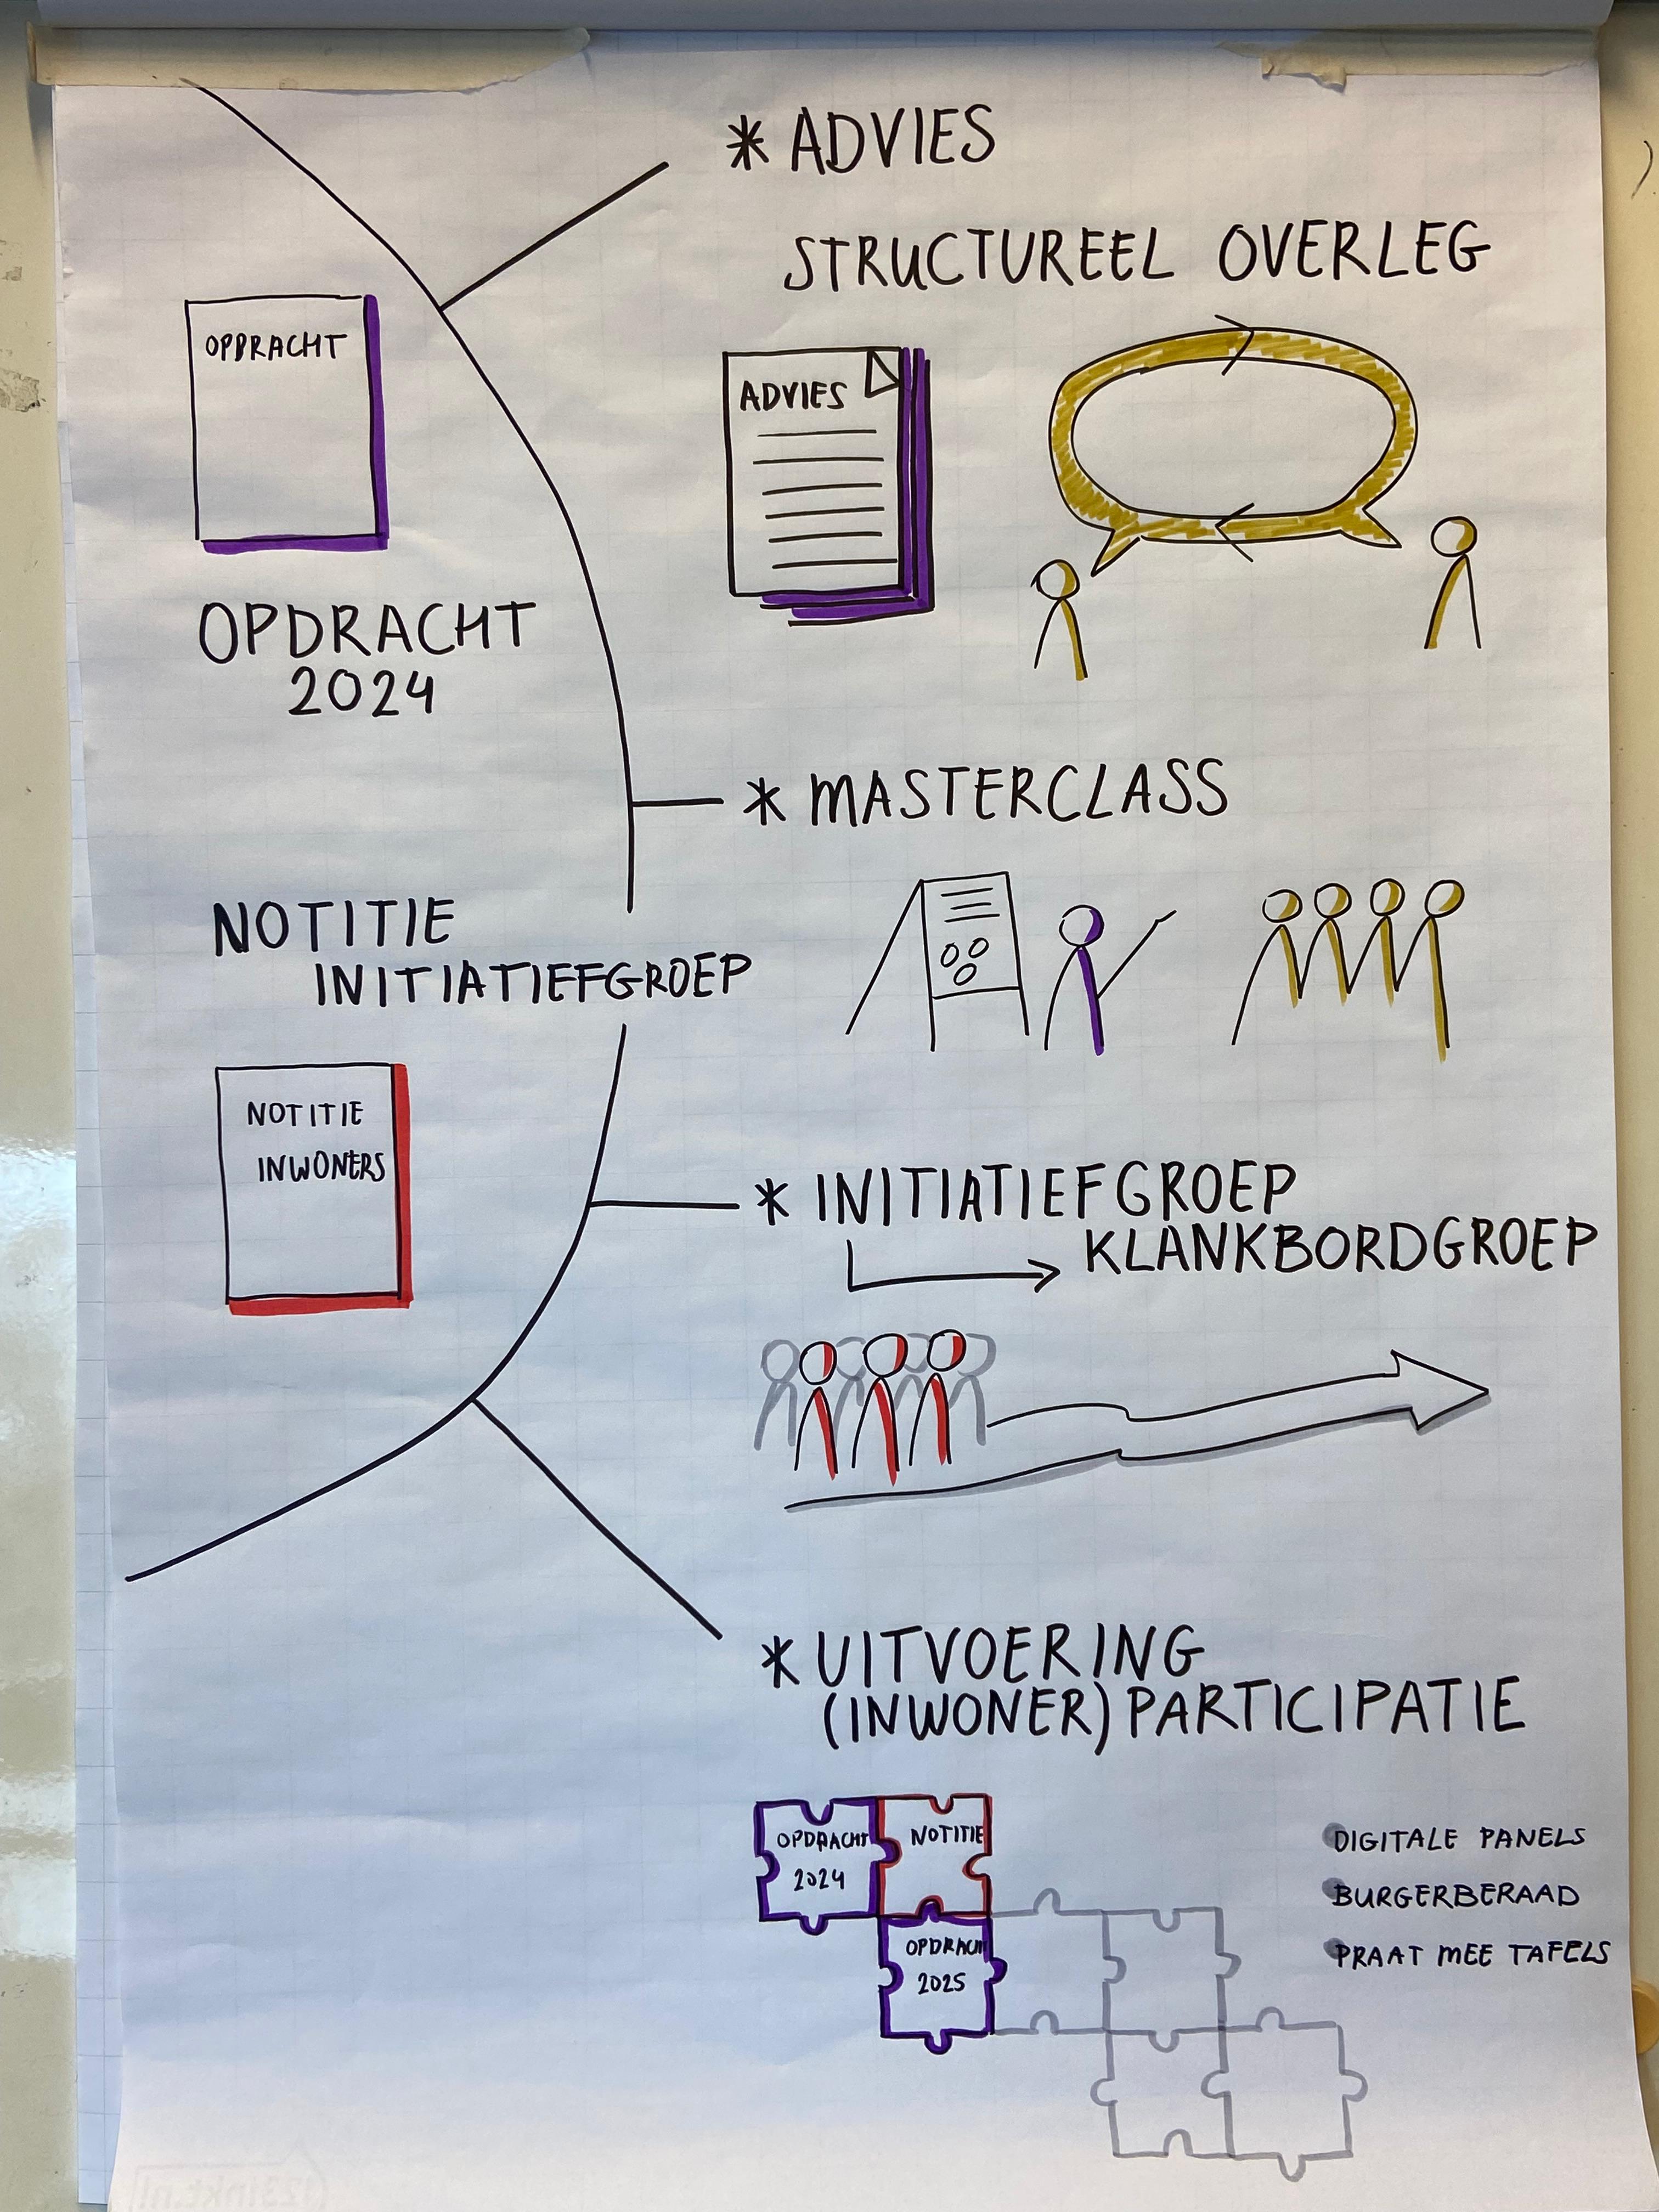 * ADVIES
STRUCTUREEL OVERLEG
OPDRACHT
ADVIES
OPDRACHT
2024
* MASTERCLASS
NOTITIE
INITIATIEFGROEP
NOTITIE
INWONERS
* INITIATIEFGROEP
KLANKBORDGROEP
* UITVOERING
(INWONER) PARTICIPATIE
OPDRACHT
2024
NOTITIE
OPDRACHT
2025
DIGITALE PANELS
BURGERBERAAD
PRAAT MEE TAFELS
123inkt.nl